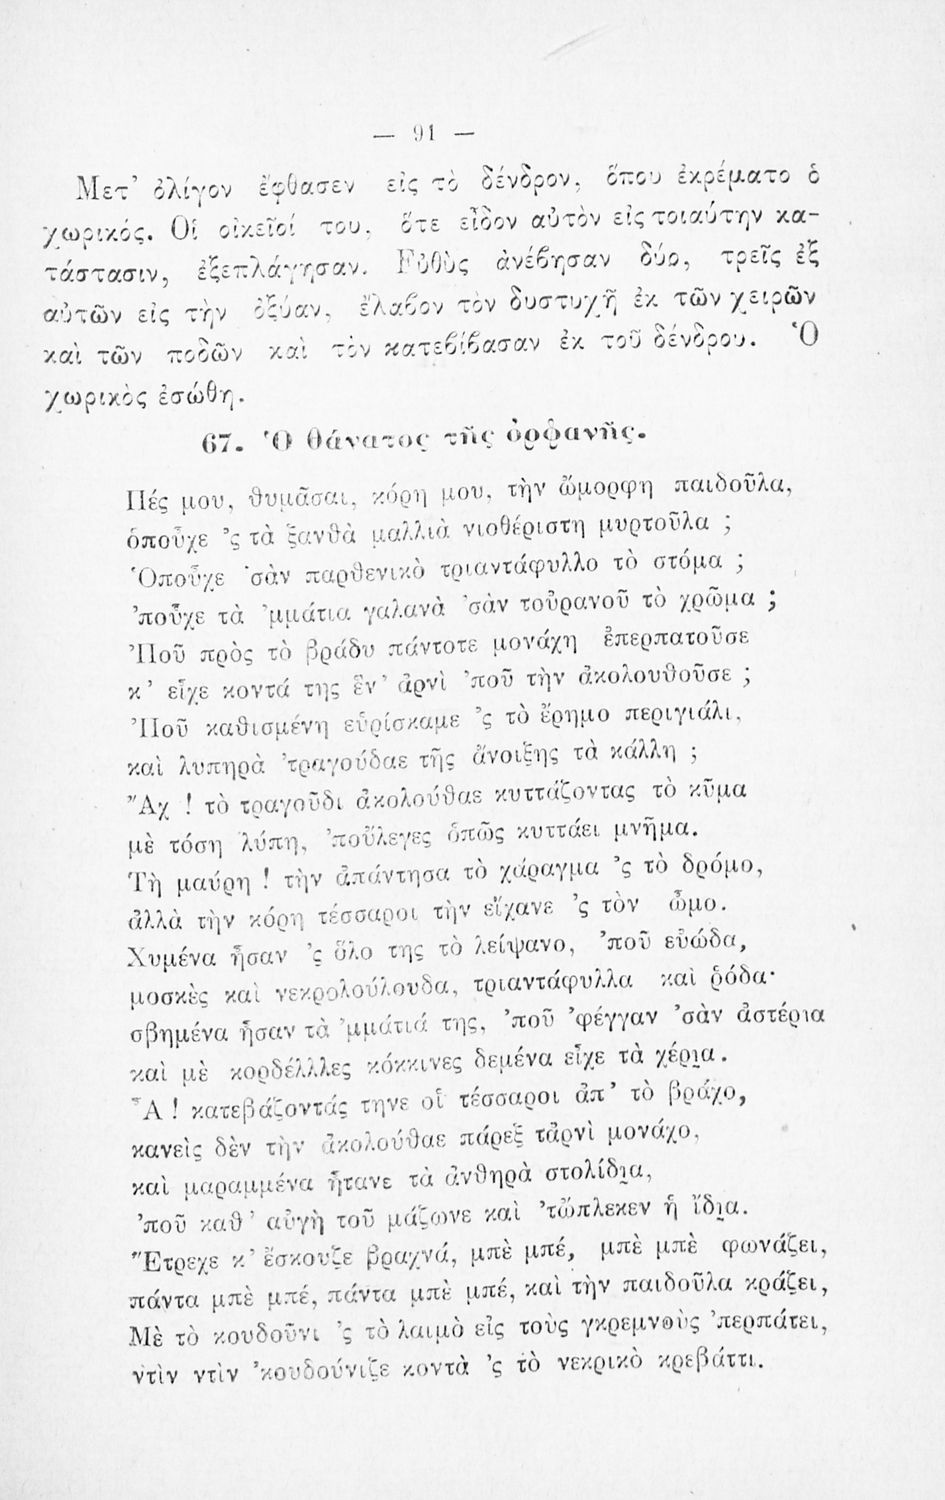 — 91 —
Μετ’ ὀλίγον ἔφθασεν εἰς τὸ δένδρον, ὅπου ἐκρέματο ὁ
χωρικός. Οἱ οἰκεῖοί του, ὅτε εἶδον αὐτὸν εἰς τοιαύτην κα-
τάστασιν, ἐξεπλάγησαν. Εὐθὺς ἀνέβησαν δύο, τρεῖς ἐξ
αὐτῶν εἰς τὴν ὀξύαν, ἔλαβον τὸν δυστυχῆ ἐκ τῶν χειρῶν
καὶ τῶν ποδῶν καὶ τὸν κατεβίβασαν ἐκ τοῦ δένδρου. Ὁ
χωρικὸς ἐσώθη.
67. Ὁ θάνατος τῆς ὀρφανῆς.
Πές μου, θυμᾶσαι, κόρη μου, τὴν ὤμορφη παιδοῦλα,
ὁποὖχε ’ς τὰ ξανθὰ μαλλιὰ νιοθέριστη μυρτοῦλα ;
Ὁποὖχε ’σὰν παρθενικὸ τριαντάφυλλο τὸ στόμα ;
’ποὖχε τὰ ’μμάτια γαλανὰ ’σὰν τοὐρανοῦ τὸ χρῶμα ;
’Ποῦ πρὸς τὸ βράδυ πάντοτε μονάχη ἐπερπατοῦσε
κ’ εἶχε κοντά της ἓν’ ἀρνὶ ’ποῦ τὴν ἀκολουθοῦσε ;
’Ποῦ καθισμένη εὑρίσκαμε ’ς τὸ ἔρημο περιγιάλι,
καὶ λυπηρὰ ’τραγούδαε τῆς ἄνοιξης τὰ κάλλη ;
Ἄχ ! τὸ τραγοῦδι ἀκολούθαε κυττάζοντας τὸ κῦμα
μὲ τόση λύπη, ’ποὔλεγες ὁπῶς κυττάει μνῆμα.
Τὴ μαύρη ! τὴν ἀπάντησα τὸ χάραγμα ’ς τὸ δρόμο,
ἀλλὰ τὴν κόρη τέσσαροι τὴν εἴχανε ’ς τὸν ὦμο.
Χυμένα ἦσαν ’ς ὅλο της τὸ λείψανο, ’ποῦ εὐώδα,
μοσκὲς καὶ νεκρολούλουδα, τριαντάφυλλα καὶ ῥόδα·
σβημένα ἦσαν τὰ ’μμάτιά της, ’ποῦ ’φέγγαν ’σὰν ἀστέρια
καὶ μὲ κορδέλλλες κόκκινες δεμένα εἶχε τὰ χέρι̯α.
Ἆ ! κατεβάζοντάς τηνε οἱ τέσσαροι ἀπ’ τὸ βράχο,
κανεὶς δὲν τὴν ἀκολούθαε πάρεξ τἀρνὶ μονάχο,
καὶ μαραμμένα ἤτανε τὰ ἀνθηρὰ στολίδι̯α,
’ποῦ καθ’ αὐγὴ τοῦ μάζωνε καὶ ’τὤπλεκεν ἡ ἴδι̯α.
Ἔτρεχε κ’ ἔσκουζε βραχνά, μπὲ μπέ, μπὲ μπὲ φωνάζει,
πάντα μπὲ μπέ, πάντα μπὲ μπέ, καὶ τὴν παιδοῦλα κράζει,
Μὲ τὸ κουδοῦνι ’ς τὸ λαιμὸ εἰς τοὺς γκρεμνοὺς ’περπάτει,
ντὶν ντὶν ’κουδούνιζε κοντὰ ’ς τὸ νεκρικὸ κρεβάττι.